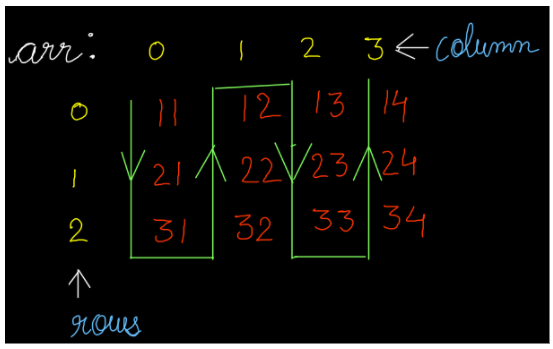 arr: 0 1 2 3 ← column
0 11 12 13 14
1 21 22 23 24
2 31 32 33 34
↑
rows